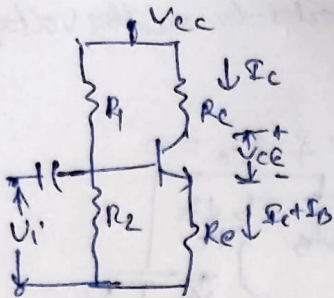 Vcc
↓ Ic
R1
Rc
+
VCE
-
Vi
R2
Re
↓ Ic+IB